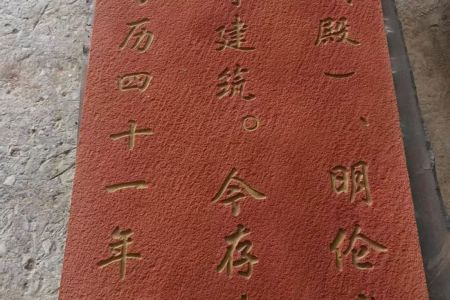 殿）、明伦
建筑。今存
历四十一年